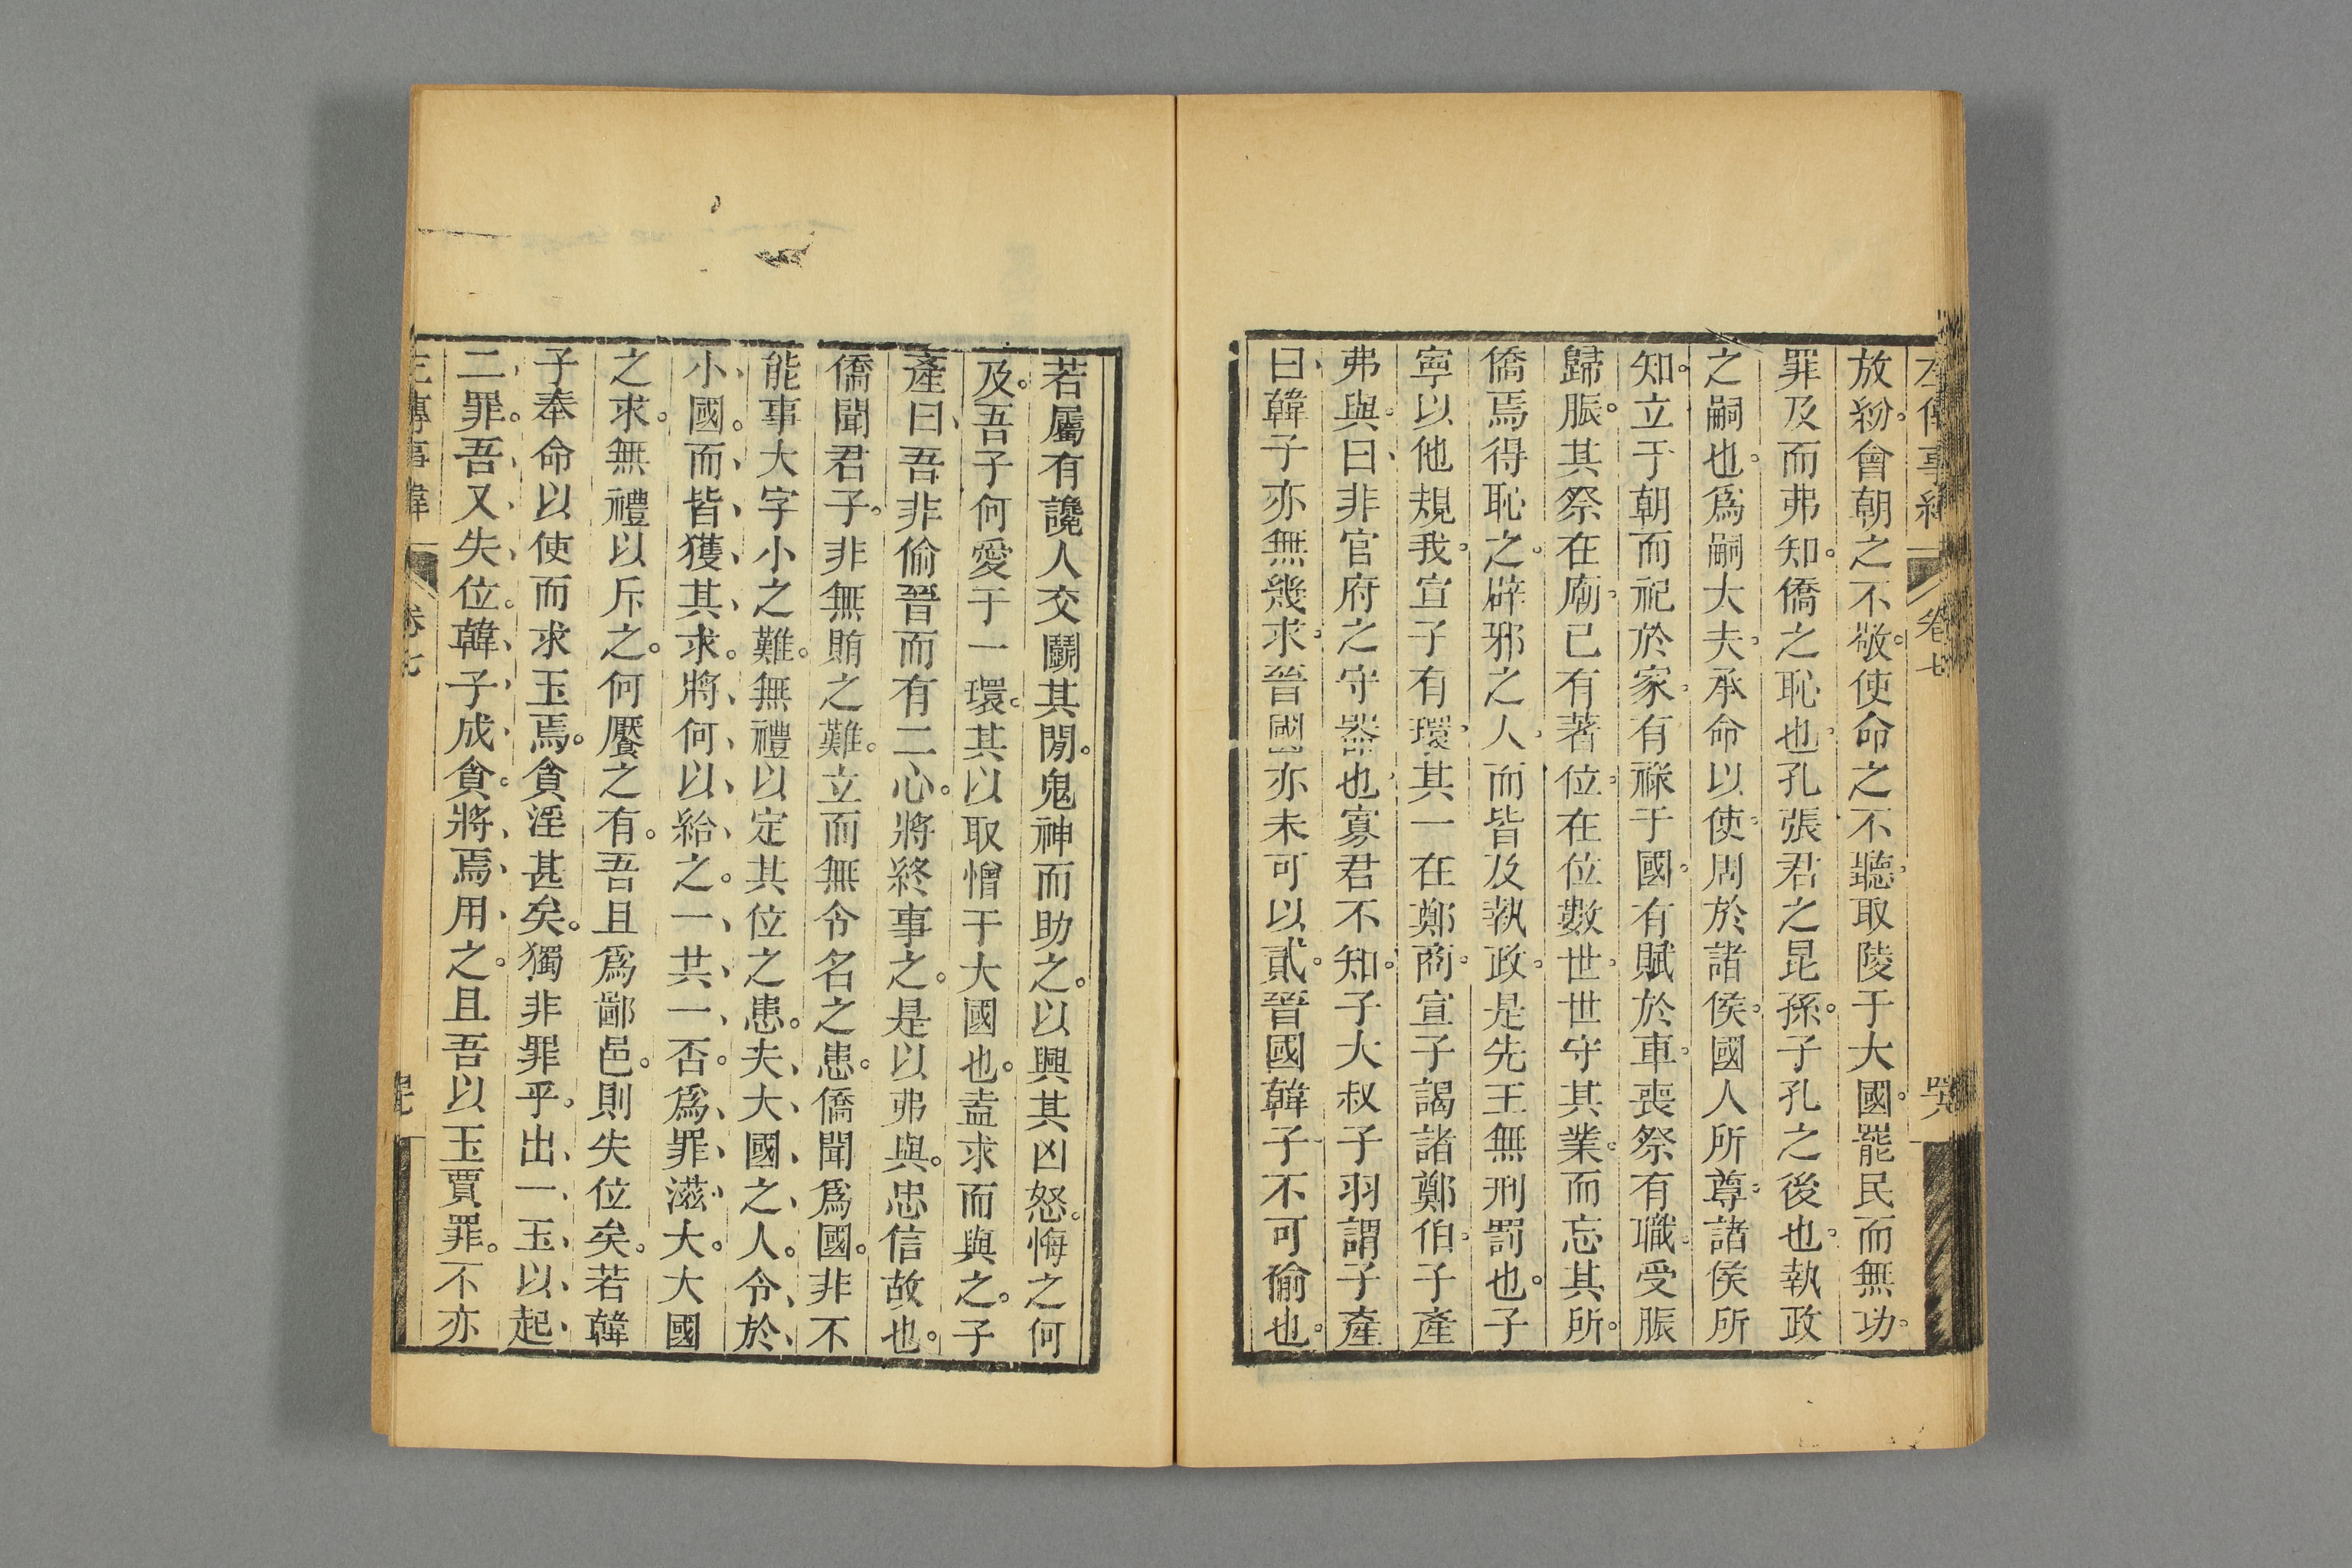 左傳事緯 卷七
放紛。會朝之不敬。使命之不聽。取陵于大國。罷民而無功。
罪及而弗知。僑之恥也。孔張君之昆孫。子孔之後也。執政
之嗣也。爲嗣大夫。承命以使。周於諸侯。國人所尊。諸侯所
知。立于朝而祀於家。有祿于國。有賦於車。喪祭有職。受脤
歸脤。其祭在廟。已有著位。在位數世。世守其業。而忘其所。
僑焉得恥之。辟邪之人。而皆及執政。是先王無刑罰也。子
寧以他規我。宣子有環。其一在鄭商。宣子謁諸鄭伯。子產
弗與。曰、非官府之守器也。寡君不知。子大叔子羽謂子產
曰、韓子亦無幾求。晉國亦未可以貳。晉國韓子不可偷也。
若屬有讒人交鬭其閒。鬼神而助之。以興其凶怒。悔之何
及。吾子何愛于一環。其以取憎于大國也。盍求而與之。子
產曰、吾非偷晉而有二心。將終事之。是以弗與。忠信故也。
僑聞君子。非無賄之難。立而無令名之患。僑聞爲國。非不
能事大字小之難。無禮以定其位之患。夫、大、國、之、人。令、於、
小、國。而、皆、獲、其、求。將、何、以、給、之。一、共、一、否。爲、罪、滋、大。大國
之求。無禮以斥之。何饜之有。吾且爲鄙邑。則失位矣。若韓
子奉命以使而求玉焉。貪淫甚矣。獨非罪乎。出、一、玉、以、起、
二、罪。吾、又、失、位。韓、子、成、貪。將、焉、用、之。且吾以玉賈罪。不亦
左傳事緯 卷七